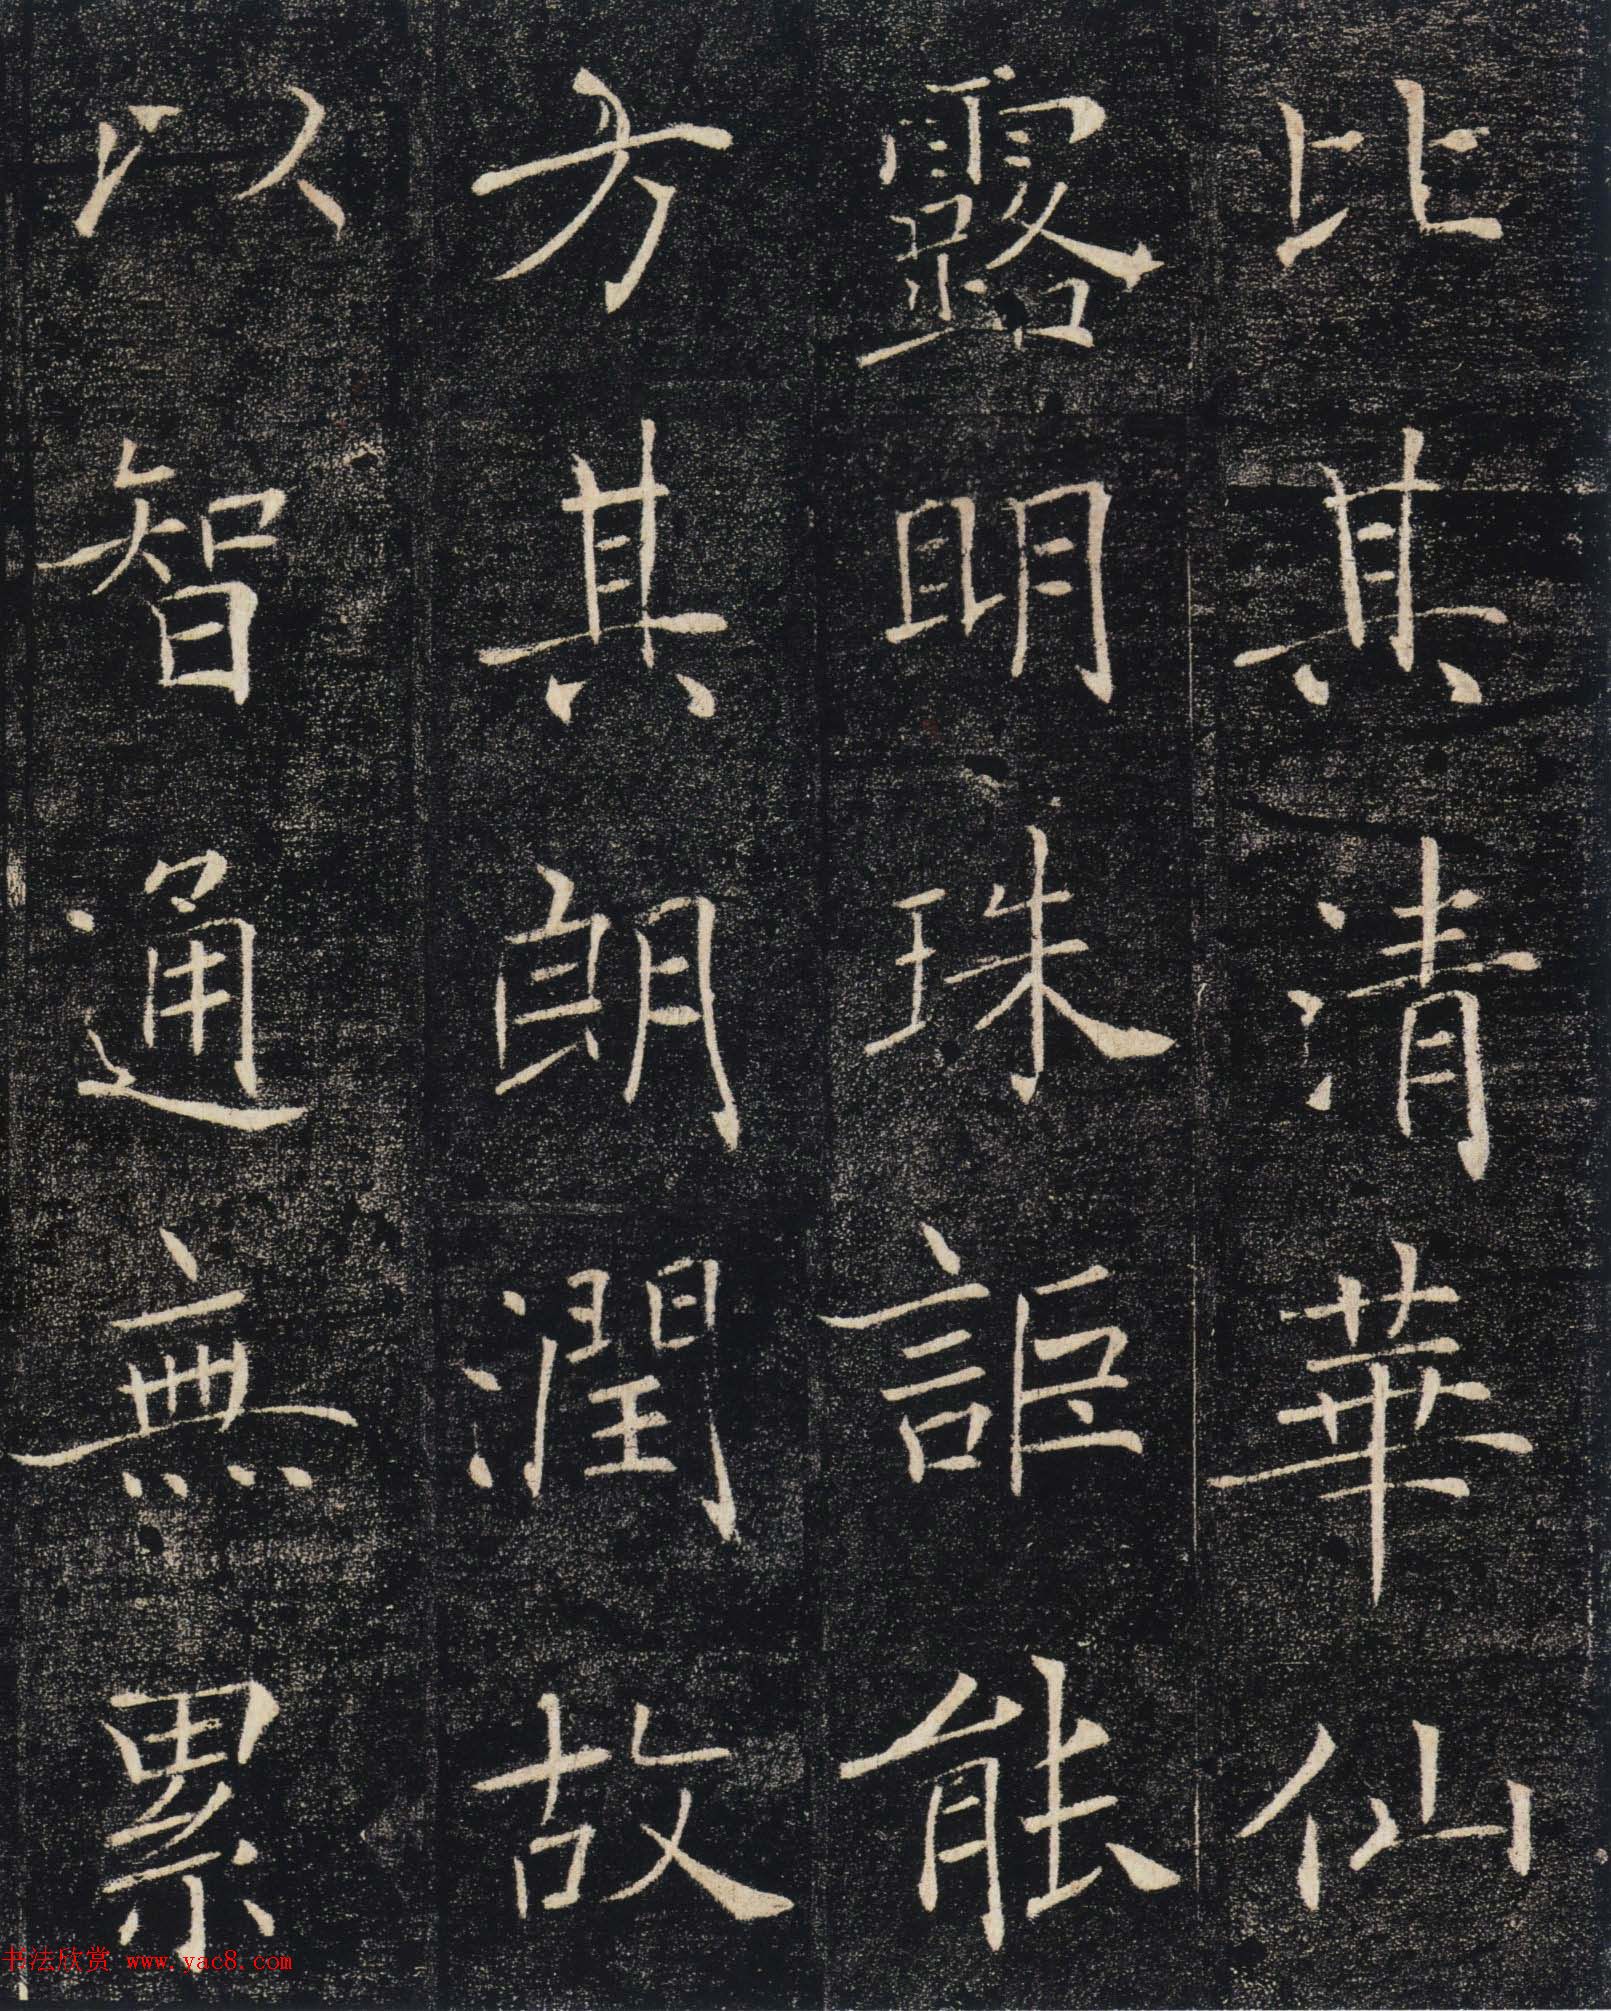 比其清華仙
露明珠詎能
方其朗潤故
以智通無累
书法欣赏 www.yac8.com